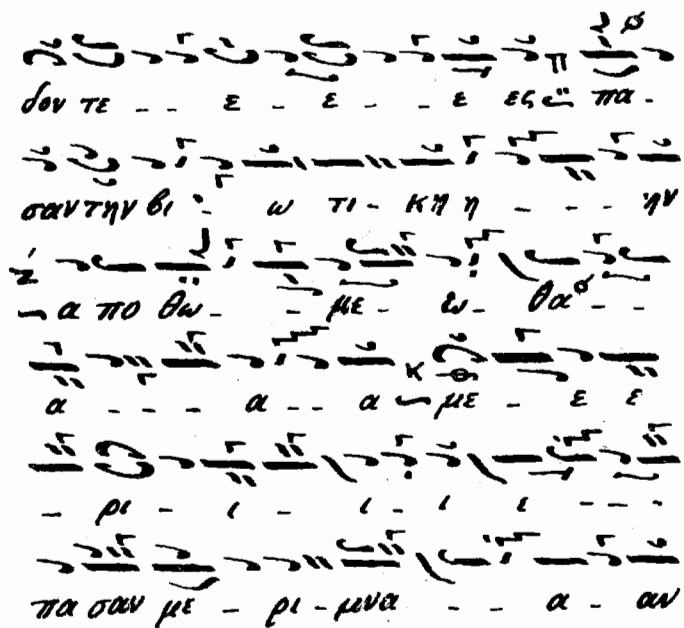 δον τε - - ε - ε - - ε ες πα -
σαν την βι - ω τι - κη η - - - ην
α πο θω - - με - ω - θα - -
α - - - α - - α με - ε ε
- ρι - ι - ι - ι ι - - -
πα σαν με - ρι - μνα - - - α - αν